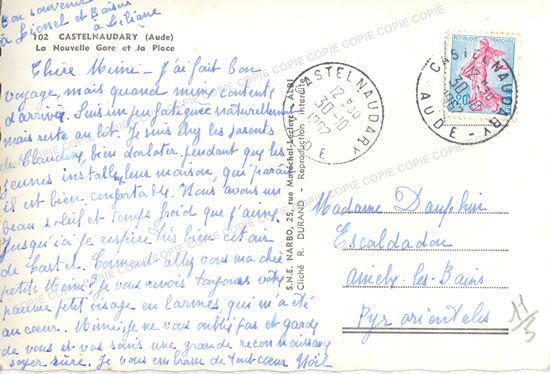 Bon souvenir
à Lionel et Baisers
à Liliane
102 CASTELNAUDARY (Aude)
La Nouvelle Gare et la Place
Chère Mimi - J'ai fait bon
voyage, mais quand même contents
d'arriver. Suis un peu fatiguée naturellement
mais reste au lit. Je suis chez les parents
de Claudine, bien dorlotée, pendant que les
jeunes installent leur maison, qui parait
il est bien confortable. Nous avons un
beau soleil et temps froid que j'aime.
Jusqu'ici je respire très bien cet air
de Castel. Comment allez vous ma chère
petite Mimi? Je vous revois toujours votre
pauvre petit visage en larmes, qui m'a été
au coeur. Mimi, je ne vous oublie pas et garde
de vous et vos sans une grande reconnaissance
soyez sûre. Je vous embrasse de tout coeur Noël
S.N.E. NARBO, 25, rue Maréchal-Leclerc - ALBI
Cliché R. DURAND - Reproduction interdite
CASTELNAUDARY
12 H30
30-10
AUDE
REPUBLIQUE FRANÇAISE
CASTELNAUDARY
12 H30
30-10
AUDE
Madame Dauphin
Escaldadou
Amély-les-Bains
Pyr orientales
COPIE COPIE COPIE COPIE COPIE COPIE